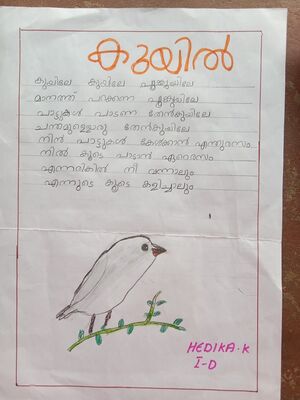 കുയിൽ
കുയിലേ കുയിലേ പൂങ്കുയിലേ
മാനത്ത് പറക്കണ പൂങ്കുയിലേ
പാട്ടുകൾ പാടണ തേൻകുയിലേ
ചന്തമുള്ളൊരു തേൻകുയിലേ
നിൻ പാട്ടുകൾ കേൾക്കാൻ എന്തുരസം
നിൻ കൂടെ പാടാൻ ഏറെരസം
എന്നരികിൽ നീ വന്നാലും
എന്നുടെ കൂടെ കളിച്ചാലും
HEDIKA.K
I-D